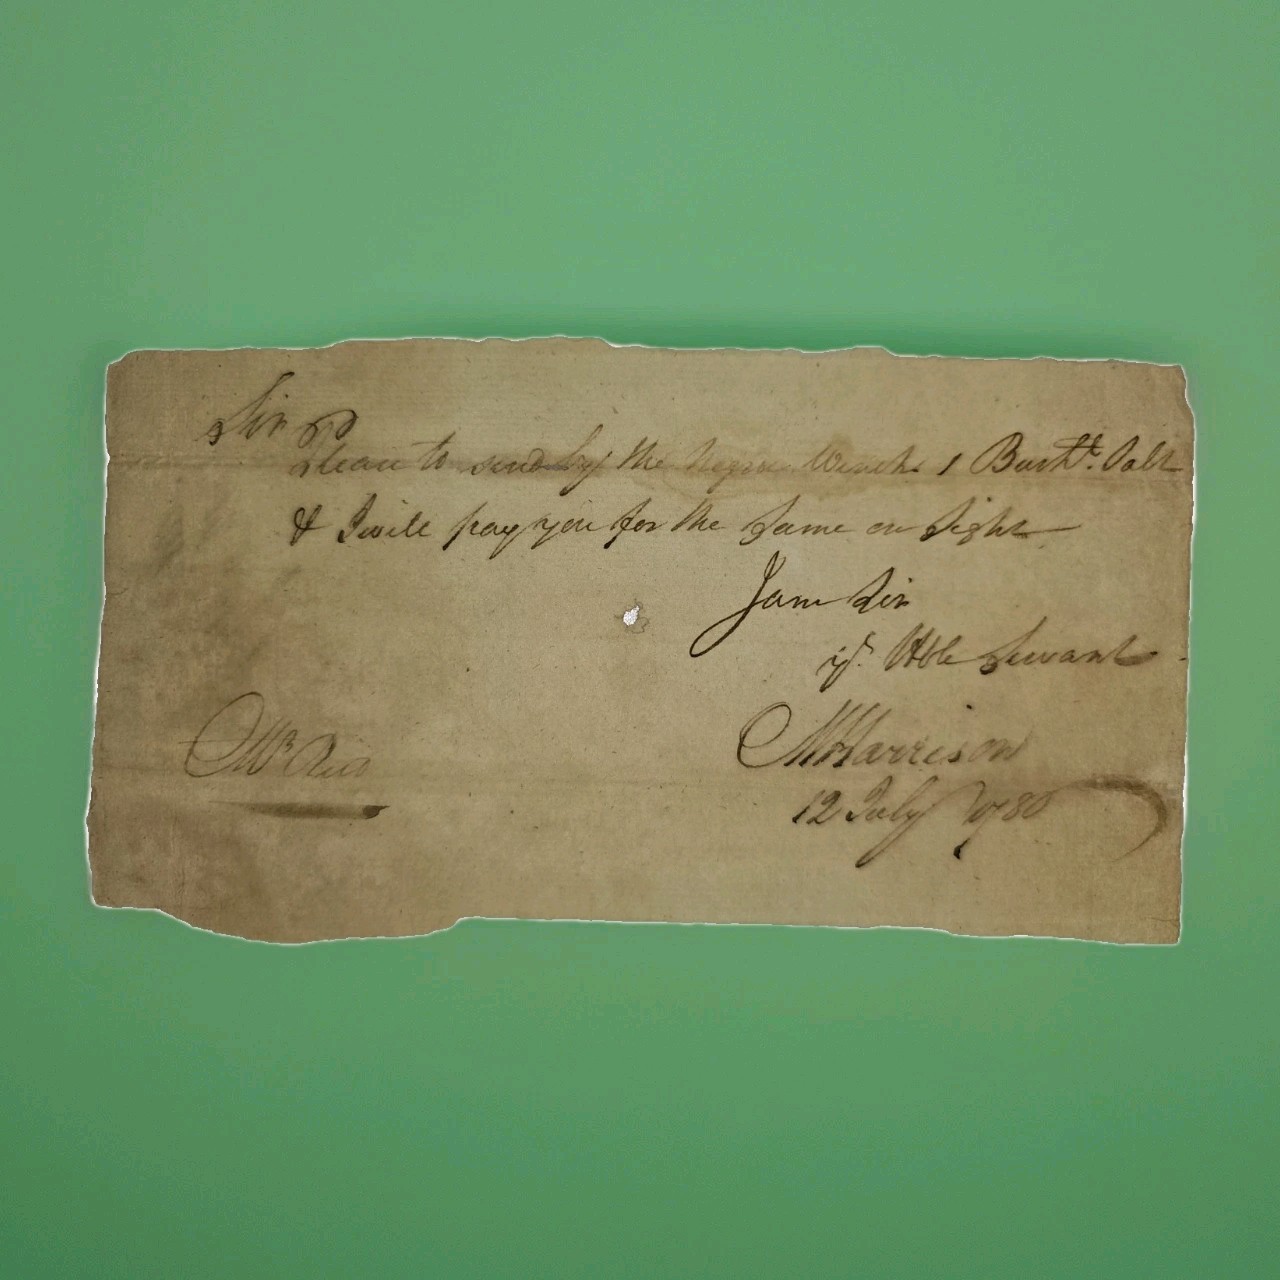 Sir
Please to send by the Negroe Wench 1 Bush.l Salt
& I will pay you for the Same on Sight
I am Sir
yr. Hble Servant
Mr Reid
WHarrison
12 July 1780